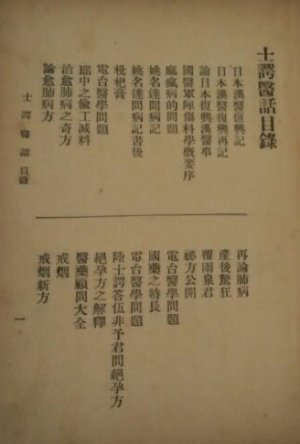 士諤醫話目錄
日本漢醫復興記
日本漢醫復興再記
論日本復興漢醫事
國醫軍陣傷科學概要序
麻瘋病的問題
姚名達問病記
姚名達問病記書後
枇杷膏
電台醫學問題
郎中之偷工減料
治愈肺病之奇方
論愈肺病方
再論肺病
產後驚狂
覆雨泉君
祕方公開
電台醫學問題
國藥之特長
電台醫學問題
陸士諤答伍非予君問絕孕方
絕孕方之解釋
醫藥顧問大全
戒烟
戒烟新方
士諤醫話 目錄
一